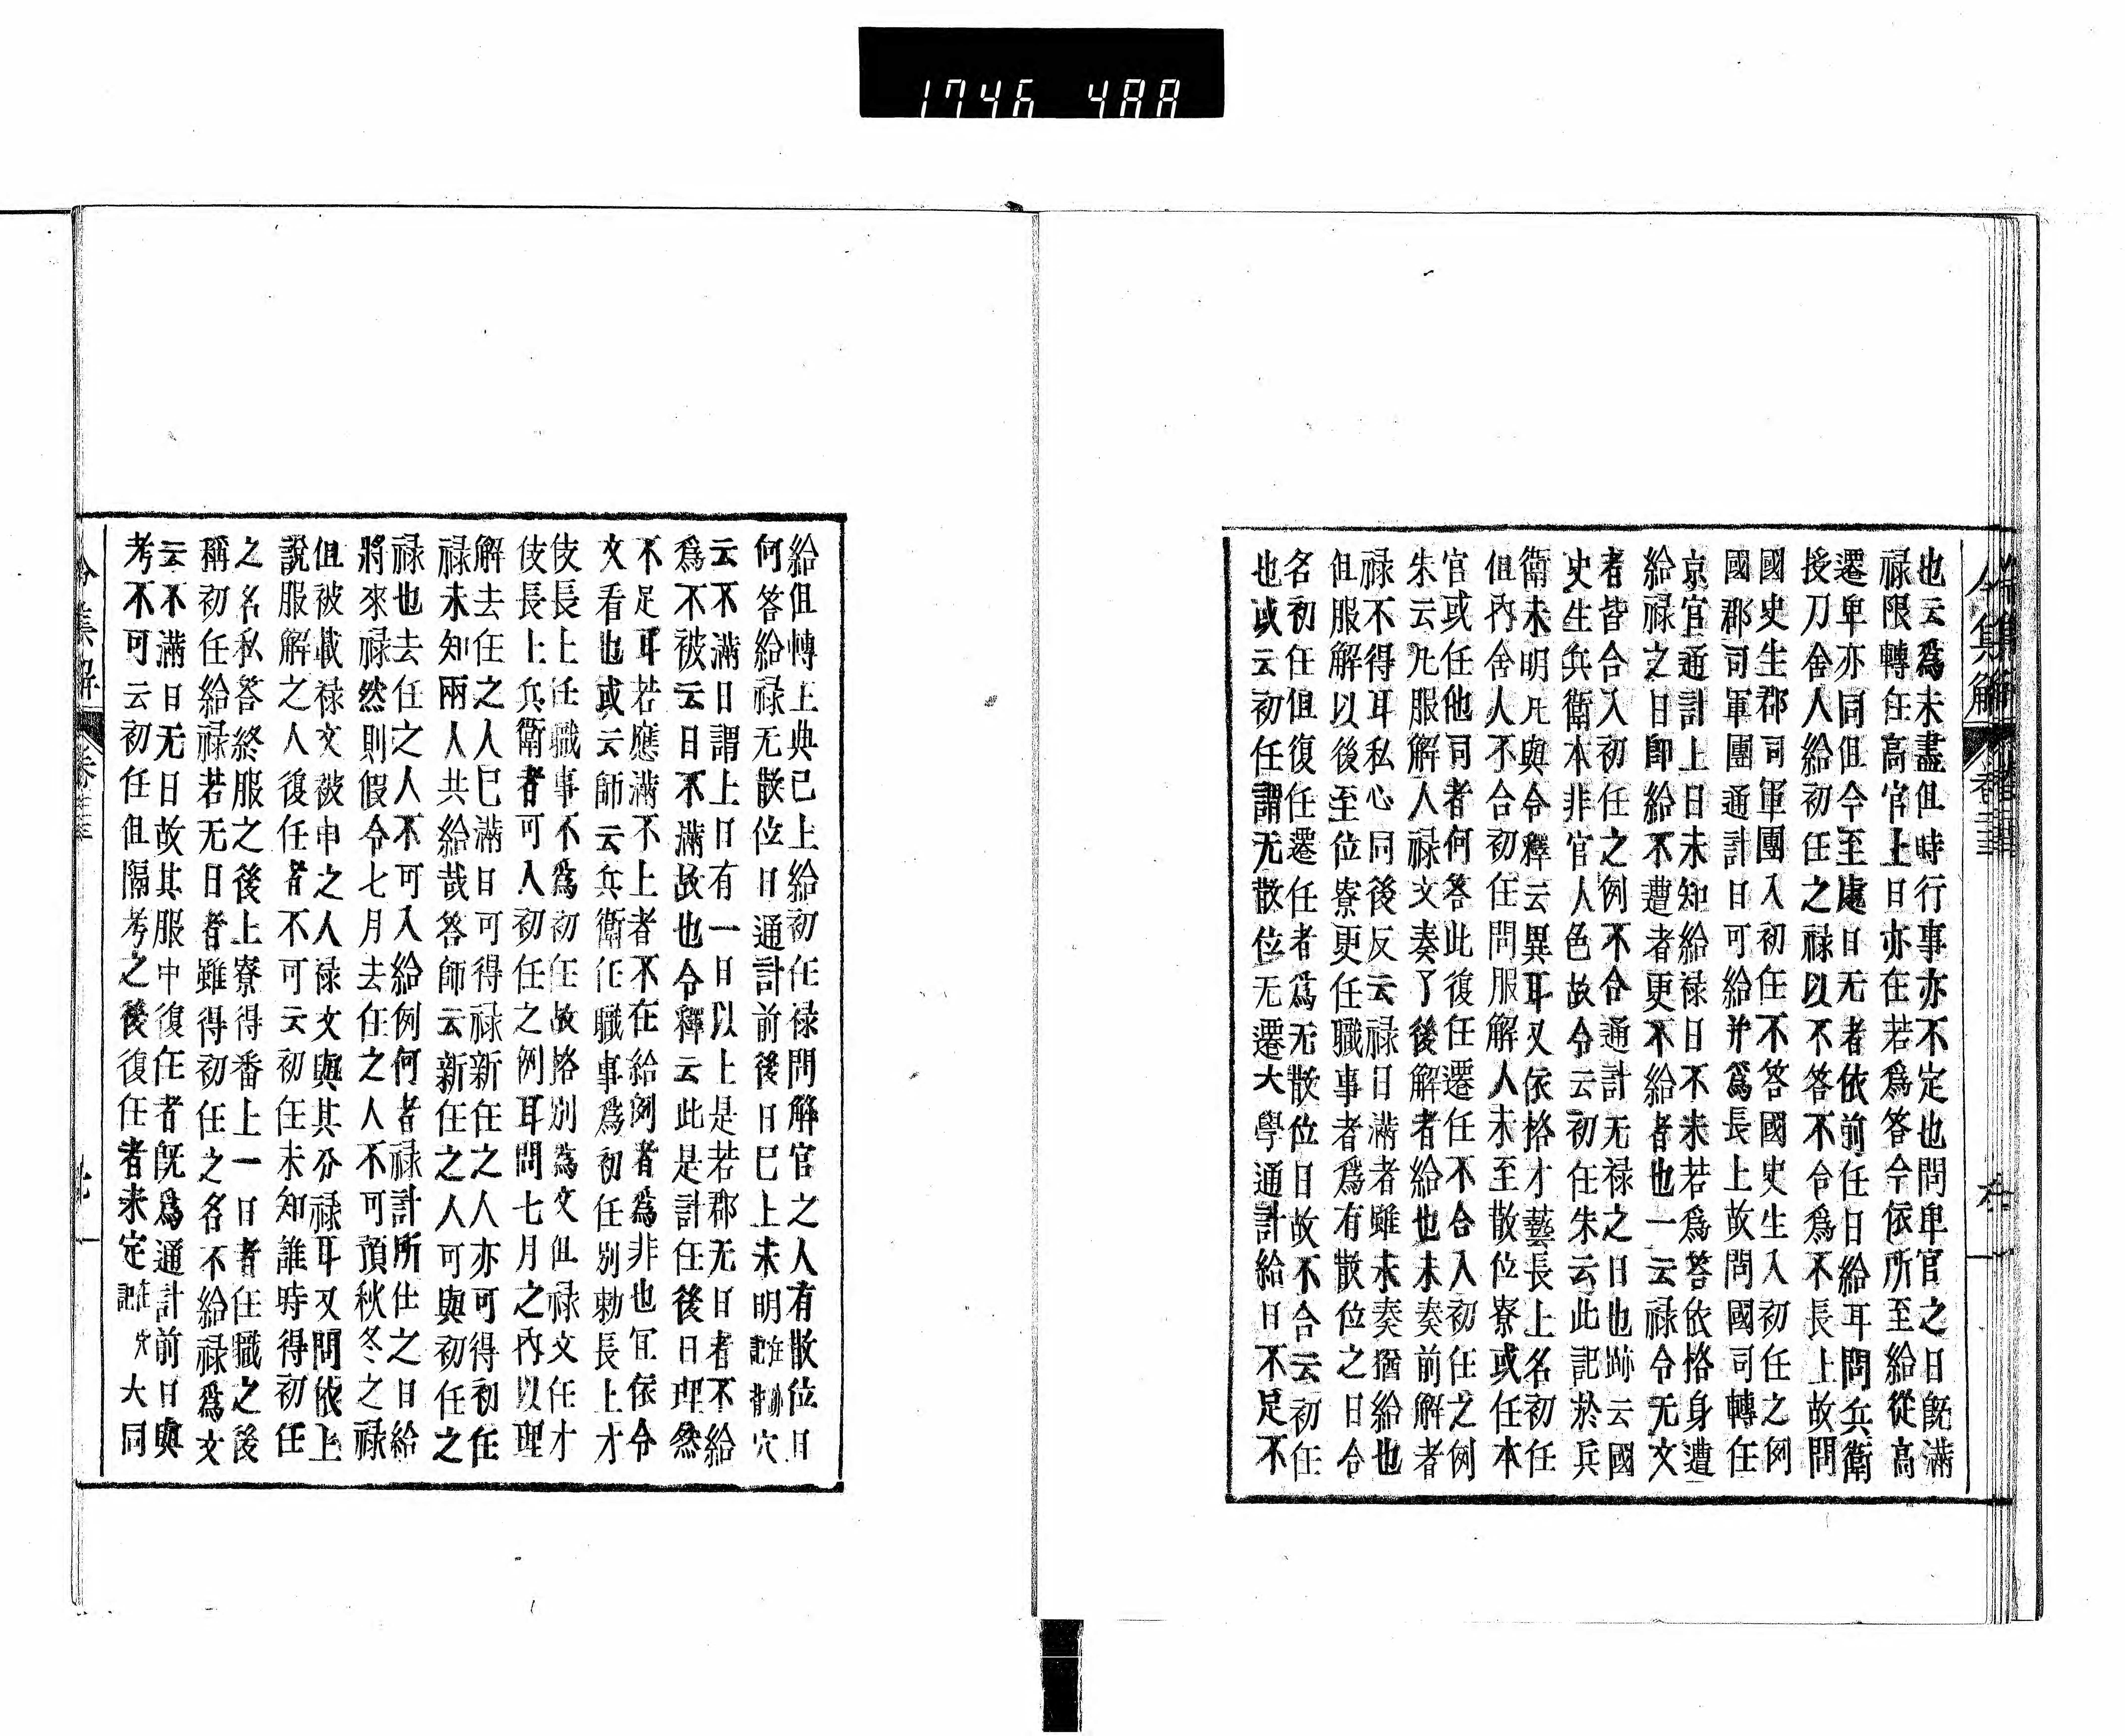 1746 488
令集解
卷二十三
也云爲未盡但時行事亦不定也問卑官之日旣滿
禄限轉任高官上日亦在若爲答今依所至給從高
遷卑亦同但今至處日无者依前任日給耳問兵衛
授刀舍人給初任之禄以不答不合爲不長上故問
國史生郡司軍團入初任不答國史生入初任之例
國郡司軍團通計日可給并爲長上故問國司轉任
京官通計上日未知給禄日不来若爲答依格身遭
給禄之日卽給不遭者更不給者也一云禄令无文
者皆合入初任之例不合通計无禄之日也跡云國
史生兵衛本非官人色故令云初任朱云此記於兵
衛未明凡與令釋云異耳又依格才藝長上名初任
但内舍人不合初任問服解人未至散位寮或任本
官或任他司者何答此復任遷任不合入初任之例
朱云凡服解人禄文奏了後解者給也未奏前解者
禄不得耳私心同後反云禄日滿者雖未奏猶給也
但服解以後至位寮更任職事者爲有散位之日合
名初任但復任遷任者爲无散位日故不合云初任
也或云初任謂无散位无遷大學通計給日不足不
給但轉上典已上給初任禄問解官之人有散位日
何答給禄无散位日通計前後日巳上未明
云不滿日謂上日有一日以上是若郡无日者不給
爲不被云日不滿故也令釋云此是計任後日理然
不足耳若應滿不上者不在給例者爲非也冝依令
文看也或云師云兵衛任職事爲初任別勅長上才
伎長上任職事不爲初任故格別爲文但禄文任才
伎長上兵衛者可入初任之例耳問七月之内以理
解去任之人巳滿日可得禄新任之人亦可得初任
禄未知兩人共給哉答師云新任之人可與初任之
禄也去任之人不可入給例何者禄計所仕之日給
將來禄然則假令七月去任之人不可預秋冬之禄
但被載禄文被申之人禄文與其分禄耳又問依上
說服解之人復任者不可云初任未知誰時得初任
之名私答終服之後上寮得番上一日者任職之後
稱初任給禄若无日者雖得初任之名不給禄爲文
云不滿日无日故其服中復任者旣爲通計前日與
考不可云初任但隔考之後復任者未定
大同